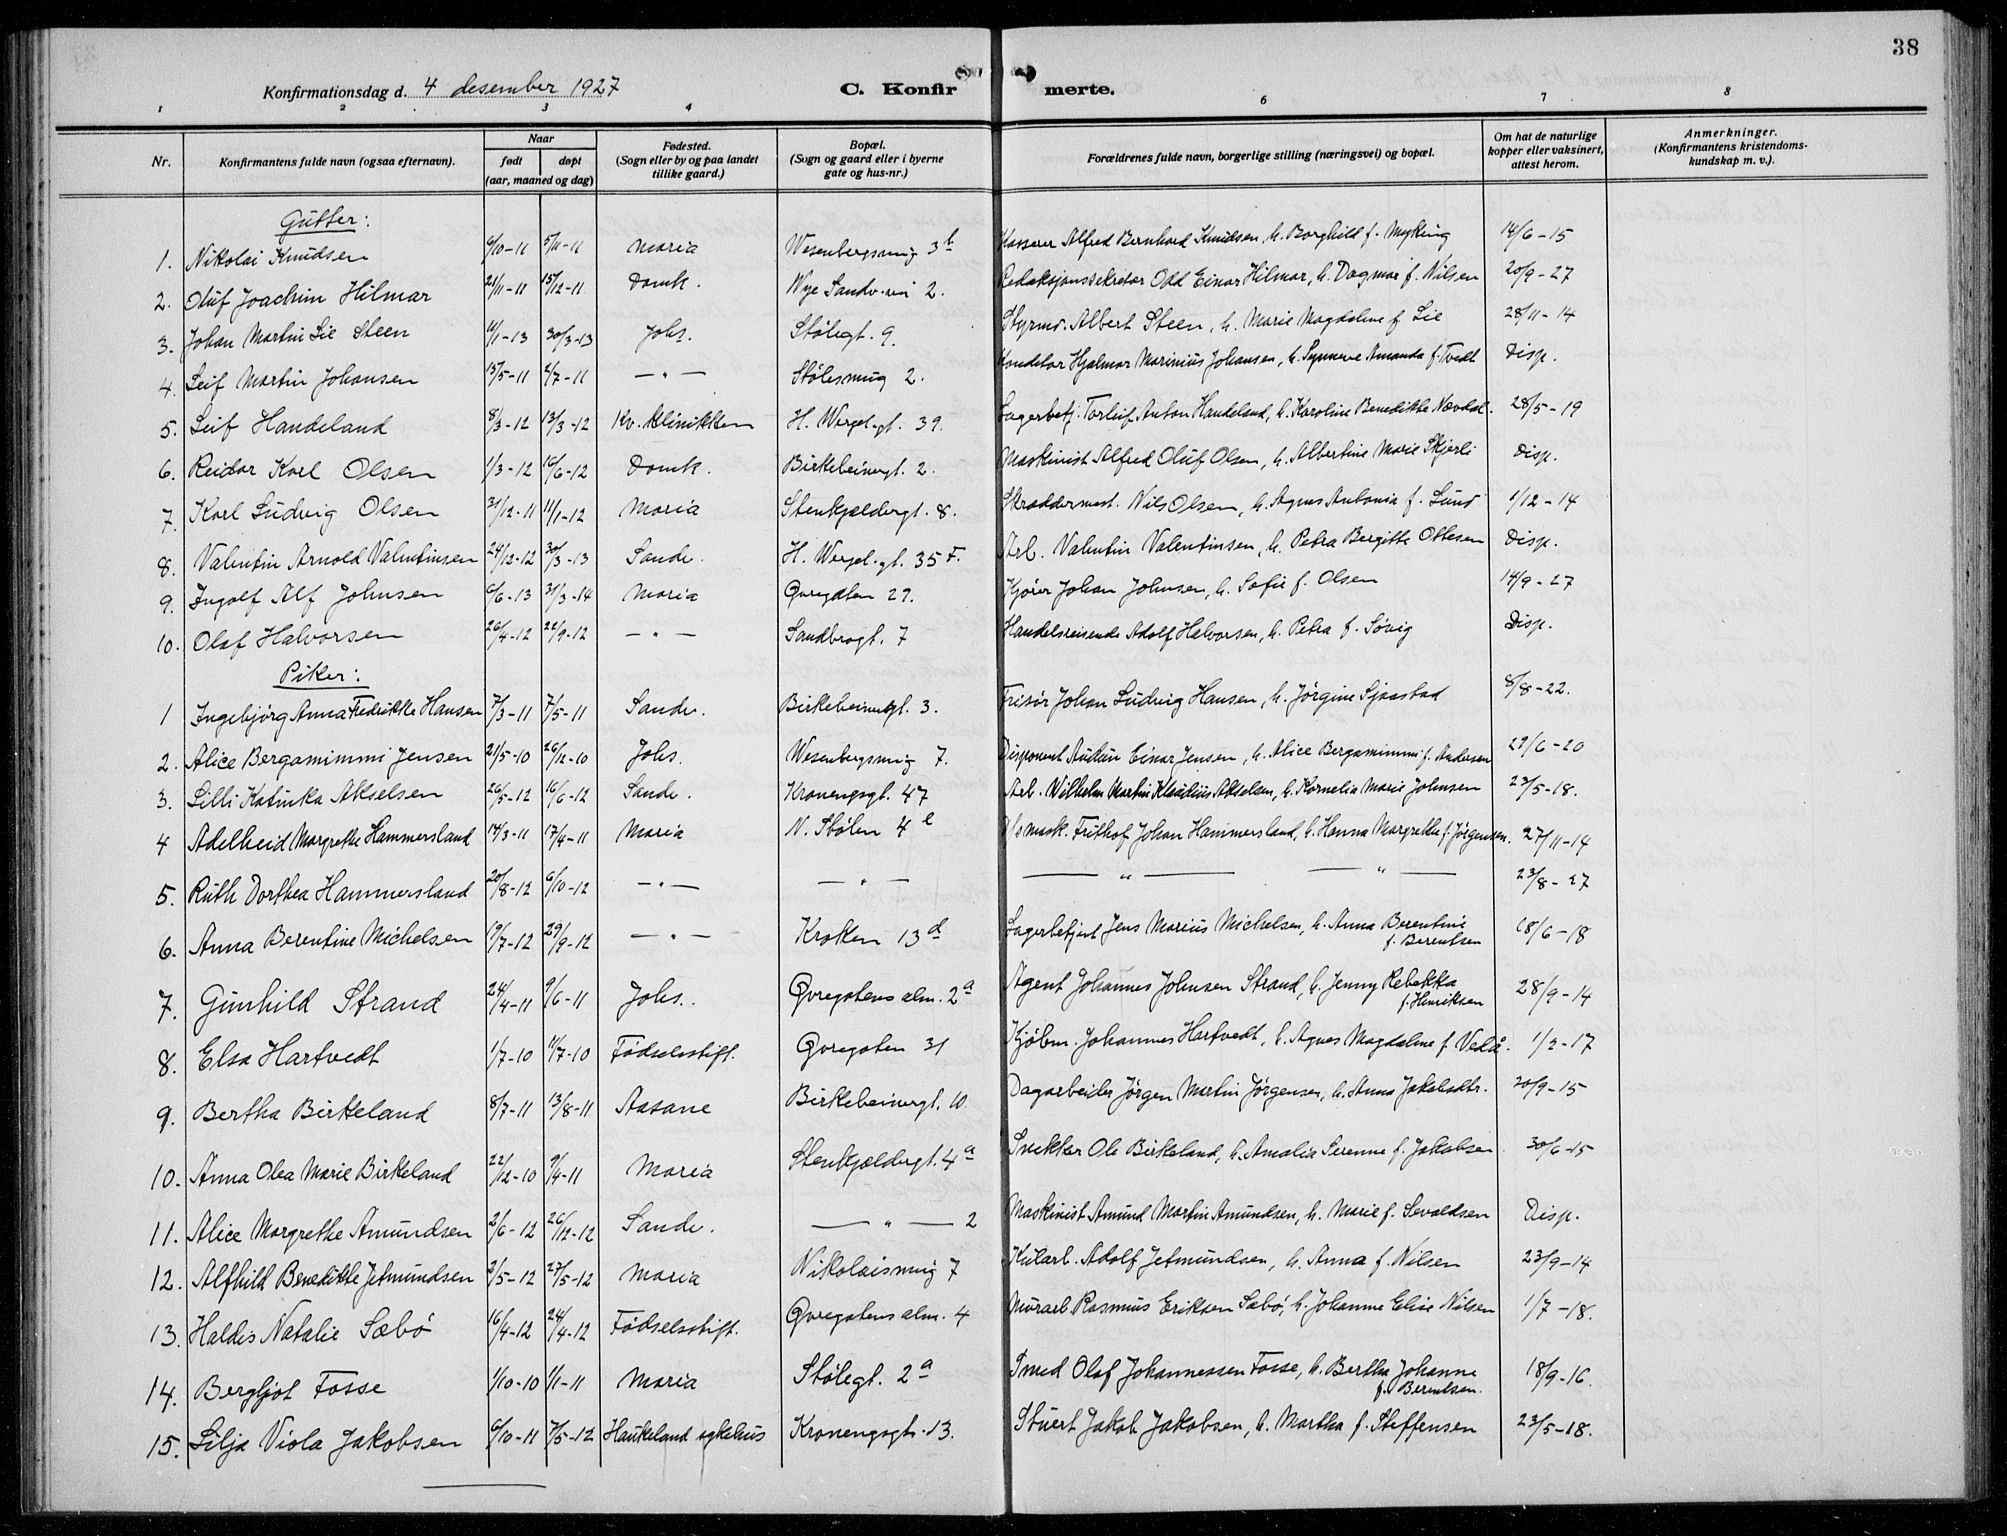 38
Konfirmationsdag d. 4 desember 1927 C. Konfirmerte.
1 2 3 4 6 7 8
Nr. Konfirmantens fulde navn (ogsaa efternavn). Naar født døpt (aar, maaned og dag) Fødested. (Sogn eller by og paa landet tillike gaard.) Bopæl. (Sogn og gaard eller i byerne gate og hus-nr.) Forældrenes fulde navn, borgerlige stilling (næringsvei) og bopæl. Om hat de naturlige kopper eller vaksinert, attest herom. Anmerkninger. (Konfirmantens kristendomskundskap m. v.).
Gutter:
1. Nikolai Knudsen 6/10-11 5/11-11 Maria Wesenbergsmug 3b Kasserer Alfred Bernhard Knudsen, h. Borghild f. Myking 14/6-15
2. Oluf Joachim Hilmar 21/11-11 15/12-11 Domk. Nye Sandv.vei 2. Redaksjonssekretær Odd Einar Hilmar, h. Dagmar f. Nilsen 20/9-27
3. Johan Martin Lie Steen 11/1-13 30/3-13 Johs. Stølegt. 9. Styrm. Albert Steen, h. Marie Magdalene f. Lie 28/11-14
4. Leif Martin Johansen 15/5-11 2/7-11 — " — Stølesmug 2. Konditor Hjalmar Marinius Johansen, h. Synneve Amanda f. Tvedt Disp.
5. Leif Handeland 8/3-12 13/3-12 Kv. Klinikken H. Wergel.gt. 39. Lagerbetj. Torleif Anton Handeland, h. Karoline Benedikte Nævdal. 28/5-19
6. Reidar Karl Olsen 1/3-12 16/6-12 Domk. Birkebeinergt. 2. Maskinist Alfred Oluf Olsen, h. Albertine Marie Skjerli Disp.
7. Karl Ludvig Olsen 31/12-11 11/1-12 Maria Stenkjeldergt. 8. Skræddermest. Nils Olsen, h. Agnes Antonia f. Lund 1/12-14
8. Valentin Arnold Valentinsen 24/12-12 30/3-13 Sandv. H. Wergel.gt. 35 F. Arb. Valentin Valentinsen, h. Petra Bergitte Ottesen Disp.
9. Ingolf Alf Johnsen 6/6-13 31/3-14 Maria Øvregaten 29. Kjører Johan Johnsen, h. Sofie f. Olsen 14/9-27
10. Olaf Halvorsen 26/4-12 22/9-12 — " — Sandbrogt. 7 Handelsreisende Adolf Halvorsen, h. Petra f. Søvig Disp.
Piker:
1 Ingebjørg Anna Fredrikke Hansen 7/3-11 7/5-11 Sandv. Birkebeinergt. 3. Frisør Johan Ludvig Hansen, h. Jørgine Sjaastad 8/8-22.
2. Alice Bergamimmi Jensen 21/5-10 26/12-10 Johs. Wesenbergsmug 7. Disponent Audun Einar Jensen, h. Alice Bergamimmi f. Andersen 29/6-20
3. Lilli Katinka Akselsen 26/5-12 16/6-12 Sandv. Kroneng­sgt. 47 Arb. Wilhelm Martin Klaudius Akselsen, h. Kornelia Marie Johnsen 23/5-18.
4 Adelheid Margrethe Hammersland 14/3-11 17/4-11 Maria N. Stølen 4e mask. Frithof Johan Hammersland, h. Hanna Margrethe f. Jørgensen. 27/11-14
5. Ruth Dorthea Hammersland 20/8-12 6/10-12 — " — — " — — " — — " — 23/8-27
6. Anna Berentine Michelsen 19/7-12 29/9-12 — " — Kroken 13d Lagerbetjent Jens Marius Michelsen, h. Anna Berentine f. Berentsen 18/6-18
7. Gunhild Strand 24/4-11 9/6-11 Johs. Øvregatens alm. 2a Agent Johannes Johnsen Strand, h. Jenny Rebekka f. Henriksen 28/9-14
8. Elsa Hartvedt 1/7-10 11/7-10 Fødselsstift. Øvregaten 31 Kjøbm. Johannes Hartvedt, h. Agnes Magdalene f. Vedå. 1/2-17
9. Bertha Birkeland 8/7-11 13/8-11 Aasane Birkebeinergt. 10. Dagarbeider Jørgen Martin Jørgensen, h. Anna Jakobsdtr. 20/9-15
10. Anna Olea Marie Birkeland 22/12-10 9/4-11 Maria Stenkjeldergt. 4a Snekker Ole Birkeland, h. Amalia Serenne f. Jakobsen 30/6-15
11. Alice Margrethe Amundsen 2/6-12 26/12-12 Sandv. — " — 2 Maskinist Amund Martin Amundsen, h. Marie f. Sevaldsen Disp.
12. Alfhild Benedikte Jetmundsen 2/5-12 27/5-12 Maria Nikolaismug 7 Kularb. Adolf Jetmundsen, h. Anna f. Nilsen 23/9-14
13. Haldis Natalie Sæbø 16/4-12 24/4-12 Fødselsstift. Øvregatens alm. 4 Murarb. Rasmus Eriksen Sæbø, h. Johanne Elise Nilsen 1/7-18.
14. Bergljot Fosse 1/10-10 1/1-11 Maria Stølegt. 2a Smed Olaf Johannessen Fosse, h. Bertha Johanne f. Berentsen. 18/9-16.
15. Silja Viola Jakobsen 6/10-11 7/5-12 Haukeland sykehus Kronengsgt. 13. Stuert Jakob Jakobsen, h. Martha f. Steffensen 23/5-18.